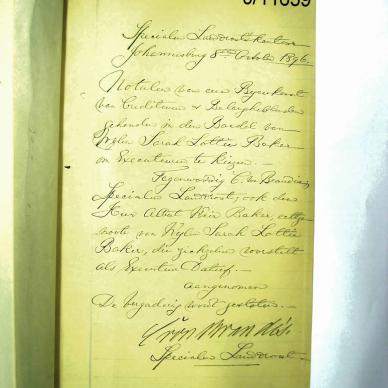 Specialen Landdrostkantoor
Johannesburg 8sten October 1896.
Notulen van een Byeenkomst
van Crediteuren & Belanghebbenden
gehouden in den Boedel van
Wylen Sarah Lottie Baker
om Executeuren te kiezen.—
Tegenwoordig C. von Brandis
Speciale Landdrost, ook den
Heer Albert Baker, echtge-
noote van Wyle Sarah Lottie
Baker, die zich voorstelt
als Executeur Datief.—
Aangenomen
De Vergadering wordt gesloten.—
C von Brandis
Speciale Landdrost